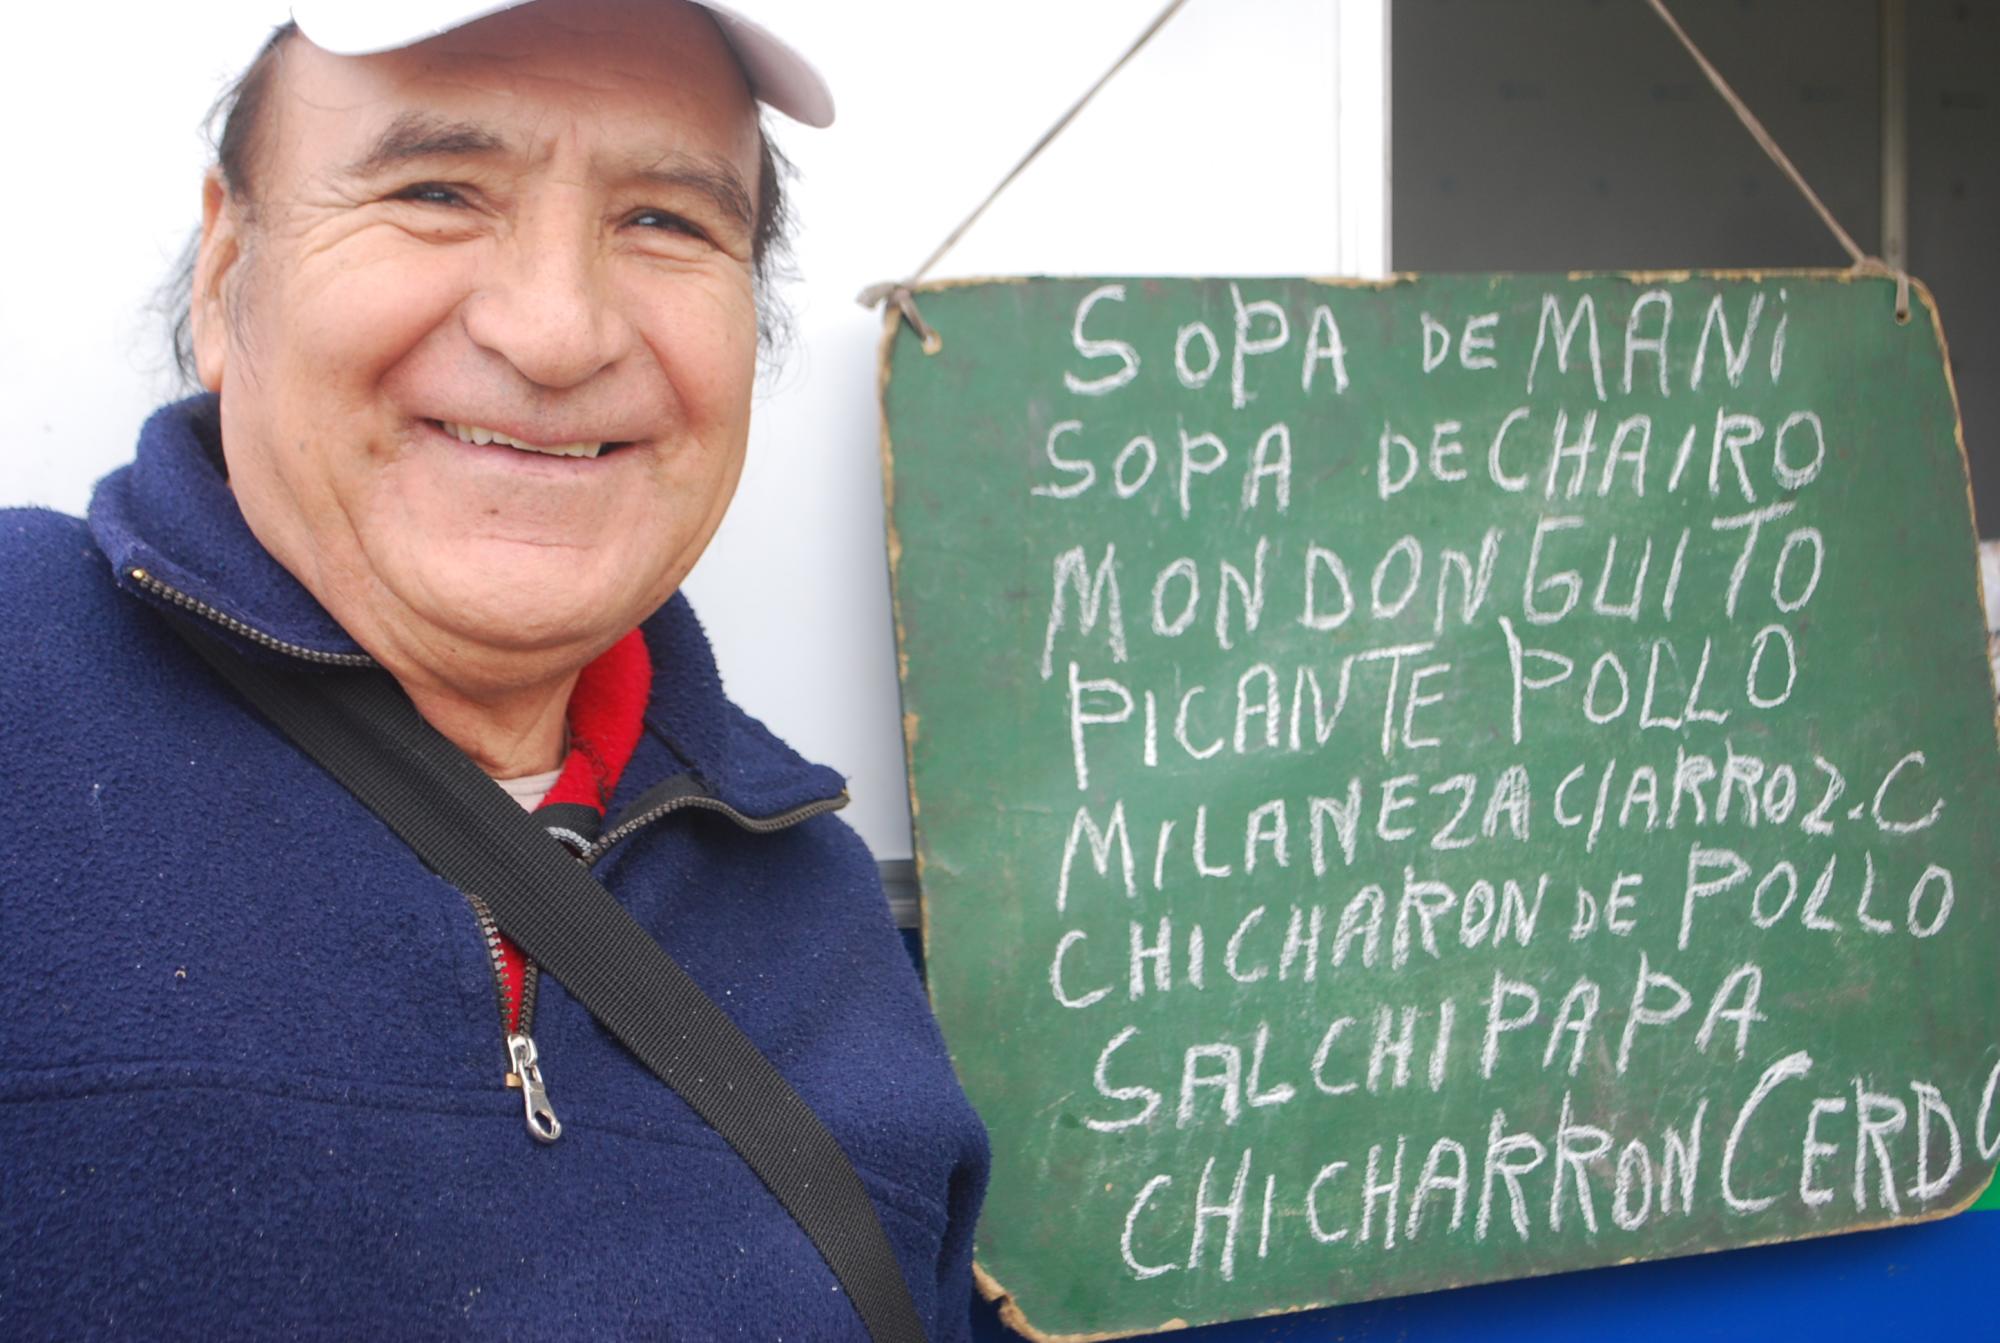 SOPA DE MANi
SOPA DE CHAIRO
MONDONGUITO
PICANTE POLLO
MILANEZA C/ARROZ.C
CHICHARON DE POLLO
SALCHIPAPA
CHICHARRON CERDO